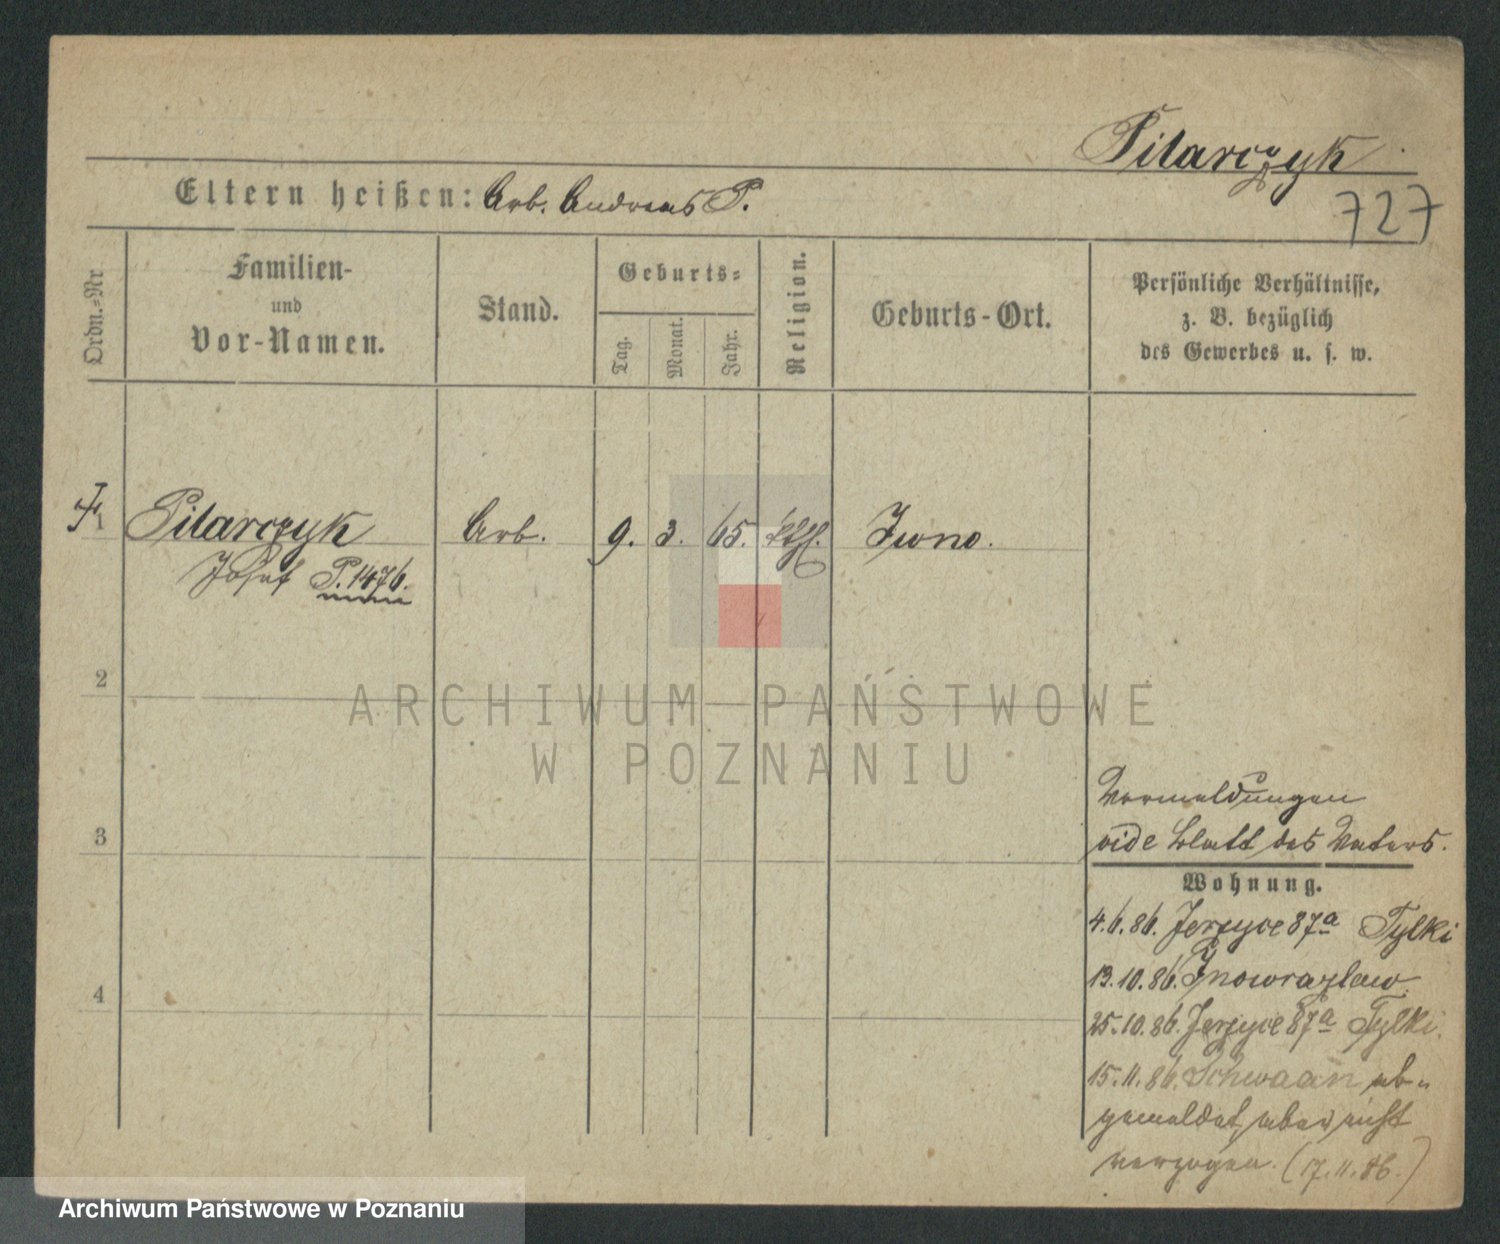 Pilarczyk
727
Eltern heißen: Arb. Andreas P.
Ordn.-Nr
Familien-
und
Vor-Namen.
Stand.
Geburts-
Tag.
Monat.
Jahr.
Religion.
Geburts-Ort.
Persönliche Verhältnisse,
z. B. bezüglich
des Gewerbes u. s. w.
1
Pilarczyk
Josef P. 1476.
Arb.
9. 3. 65. kthl. Iwno.
2
ARCHIWUM PAŃSTWOWE
W POZNANIU
3
Vormeldungen
vide Blatt des Vaters.
Wohnung.
4.6.86. Jerzyce 87a Tylki
13.10.86. Inowrazlaw
4
25.10.86. Jerzyce 87a Tylki.
15.11.86. Schwaan ab-
gemeldet, aber nicht
verzogen. (17.11.86.)
Archiwum Państwowe w Poznaniu